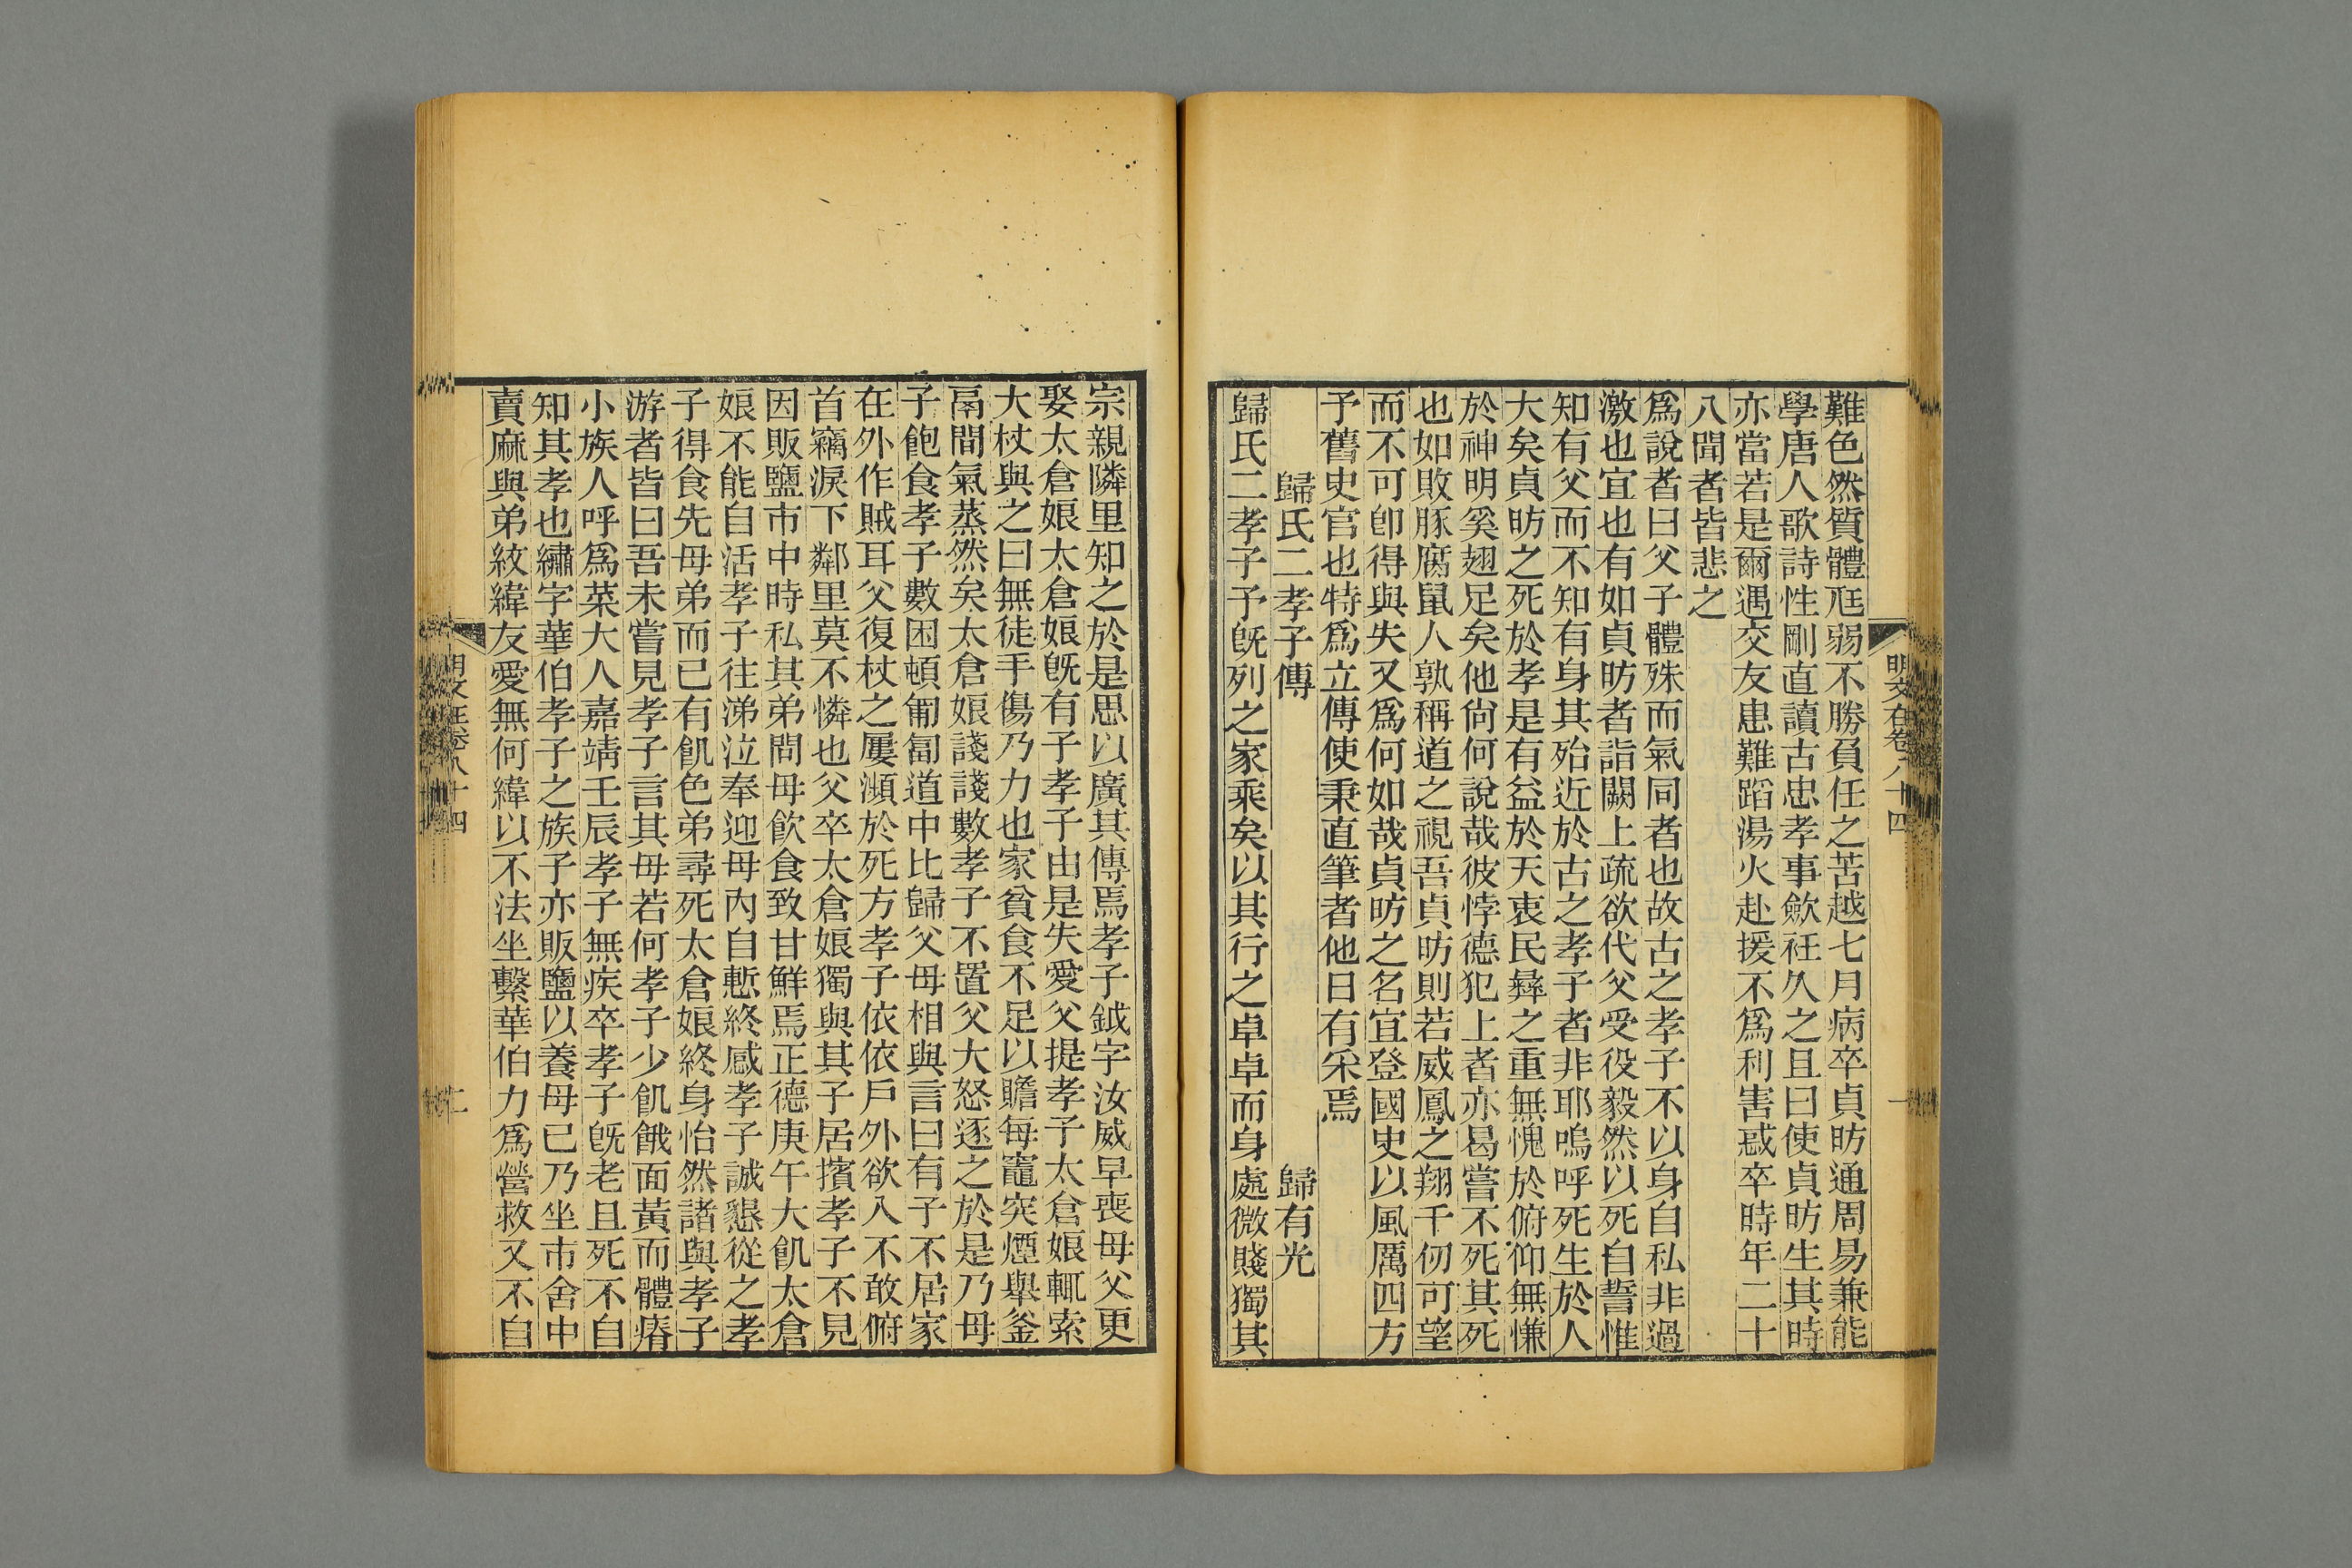 明文在卷八十四
一
難色然質體尫弱不勝負任之苦越七月病卒貞昉通周易兼能
學唐人歌詩性剛直讀古忠孝事歛衽久之且曰使貞昉生其時
亦當若是爾遇交友患難蹈湯火赴援不爲利害惑卒時年二十
八聞者皆悲之
爲說者曰父子體殊而氣同者也故古之孝子不以身自私非過
激也宜也有如貞昉者詣闕上疏欲代父受役毅然以死自誓惟
知有父而不知有身其殆近於古之孝子者非耶嗚呼死生於人
大矣貞昉之死於孝是有益於天衷民彝之重無愧於俯仰無慊
於神明奚翅足矣他尙何說哉彼悖德犯上者亦曷嘗不死其死
也如敗豚腐鼠人孰稱道之視吾貞昉則若威鳳之翔千仞可望
而不可卽得與失又爲何如哉貞昉之名宜登國史以風厲四方
予舊史官也特爲立傳使秉直筆者他日有采焉
歸氏二孝子傳 歸有光
歸氏二孝子予旣列之家乘矣以其行之卓卓而身處微賤獨其
宗親隣里知之於是思以廣其傳焉孝子鉞字汝威早喪母父更
娶太倉娘太倉娘旣有子孝子由是失愛父提孝子太倉娘輒索
大杖與之曰無徒手傷乃力也家貧食不足以贍每竈突煙舉釜
鬲間氣蒸然矣太倉娘諓諓數孝子不置父大怒逐之於是乃母
子飽食孝子數困頓匍匐道中比歸父母相與言曰有子不居家
在外作賊耳父復杖之屢瀕於死方孝子依依戶外欲入不敢俯
首竊淚下鄰里莫不憐也父卒太倉娘獨與其子居擯孝子不見
因販鹽市中時私其弟問母飮食致甘鮮焉正德庚午大飢太倉
娘不能自活孝子往涕泣奉迎母內自慙終感孝子誠懇從之孝
子得食先母弟而已有飢色弟尋死太倉娘終身怡然諸與孝子
游者皆曰吾未嘗見孝子言其母若何孝子少飢餓面黃而體瘠
小族人呼爲菜大人嘉靖壬辰孝子無疾卒孝子旣老且死不自
知其孝也繡字華伯孝子之族子亦販鹽以養母已乃坐市舍中
賣麻與弟紋緯友愛無何緯以不法坐繫華伯力爲營救又不自
明文在卷八十四
二